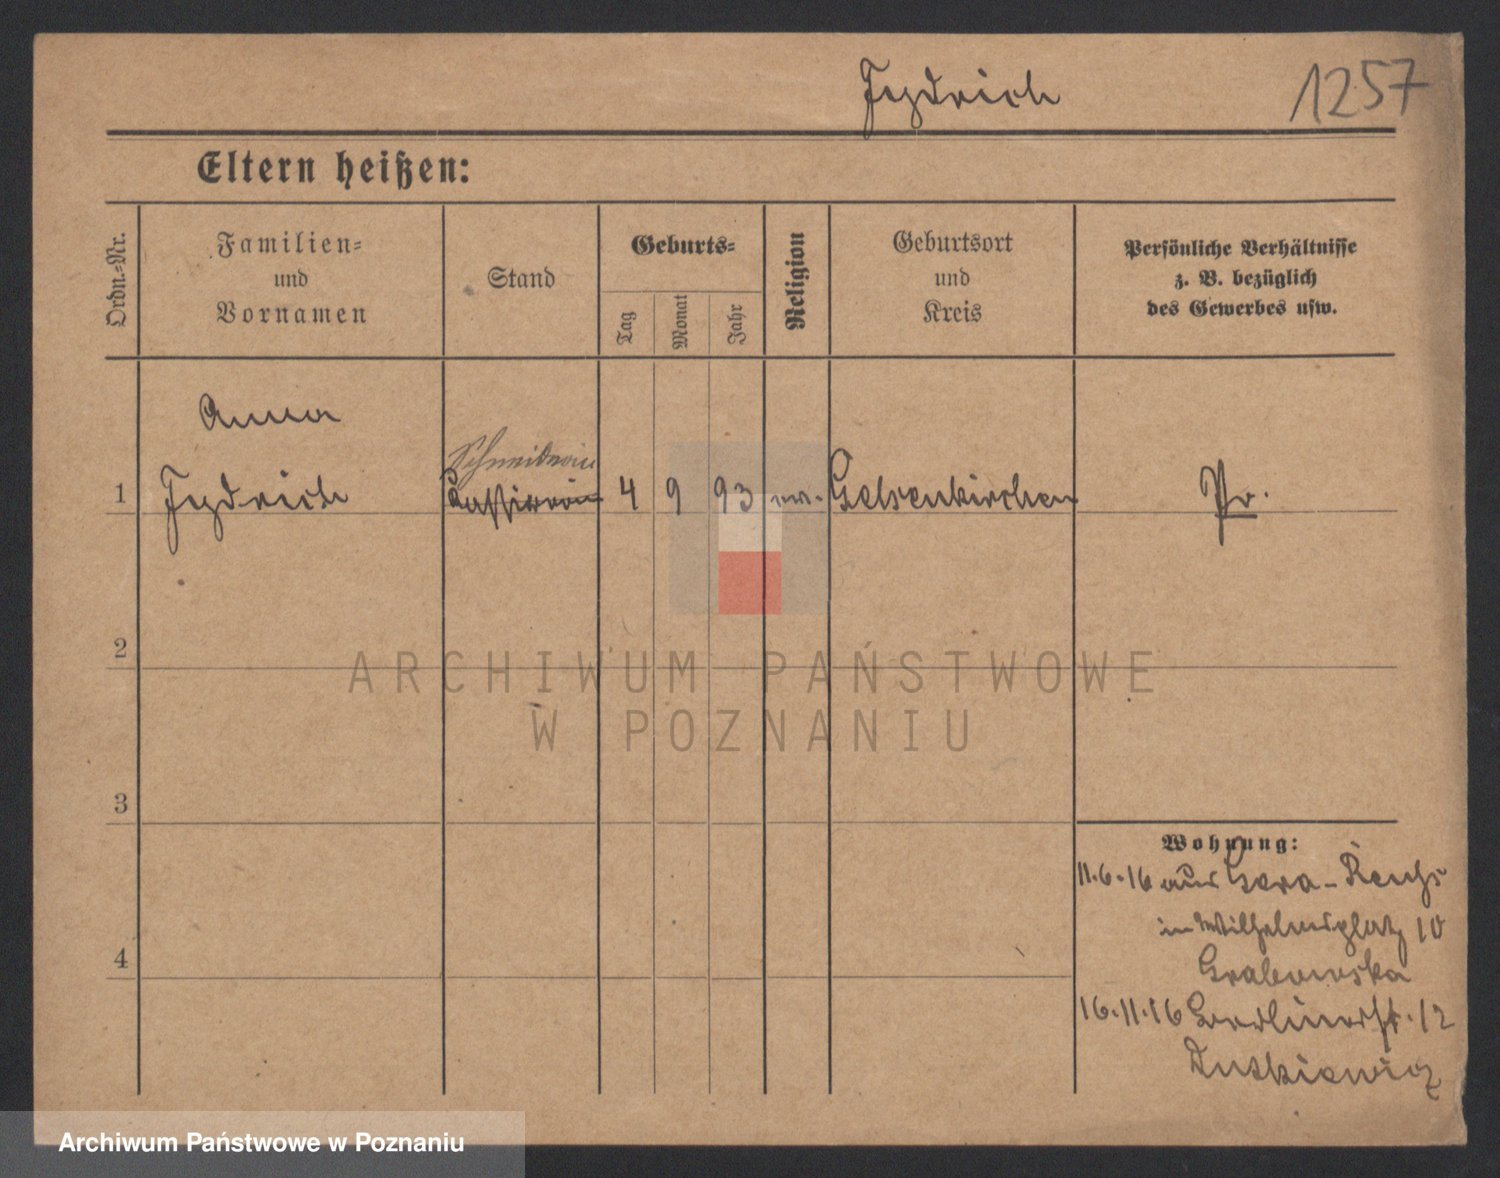 Jezdrich 1257
Eltern heißen:
Ordn.-Nr.
Familien-
und
Vornamen
Stand
Geburts-
Tag
Monat
Jahr
Religion
Geburtsort
und
Kreis
Persönliche Verhältnisse
z. B. bezüglich
des Gewerbes usw.
Anna
Schneiderin
1 Jezdrich Kassiererin 4 9 93 ev. Gelsenkirchen Pr.
2
ARCHIWUM PAŃSTWOWE
W POZNANIU
3
Wohnung:
11.6.16 aus Gera-Reuß
in Wilhelmsplatz 10
Grabowska
4
16.11.16 Berlinerstr. 12
Dutkiewicz
Archiwum Państwowe w Poznaniu